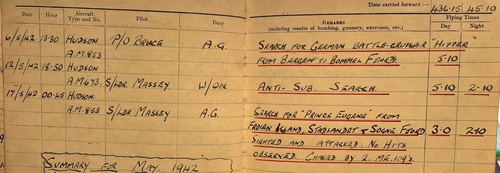 Time carried forward :— 436·15 45·10
Date Hour Aircraft Type and No. Pilot Duty REMARKS (including results of bombing, gunnery, exercises, etc.) Flying Times Day Night
6/5/42 13·30 HUDSON P/O BRUCE A.G. SEARCH FOR GERMAN BATTLE-CRUISER "HIPPER"
A.M.853 FROM BERGEN TO BOMMEL FJORD. 5·10
12/5/42 18·50 HUDSON
A.M.673. S/LDR MASSEY W/OIR ANTI-SUB. SEARCH 5·10 2·10
17/5/42 00·45 HUDSON.
A.M.853 S/LDR MASSEY A.G. SEARCH FOR "PRINCE EUGENE" FROM
ISLAND, STADLANDET & SOGNE FJORD 3·0 2·10
SIGHTED AND ATTACKED. NO HITS
OBSERVED. CHASED BY 2. ME.109's.
SUMMARY FOR MAY, 1942